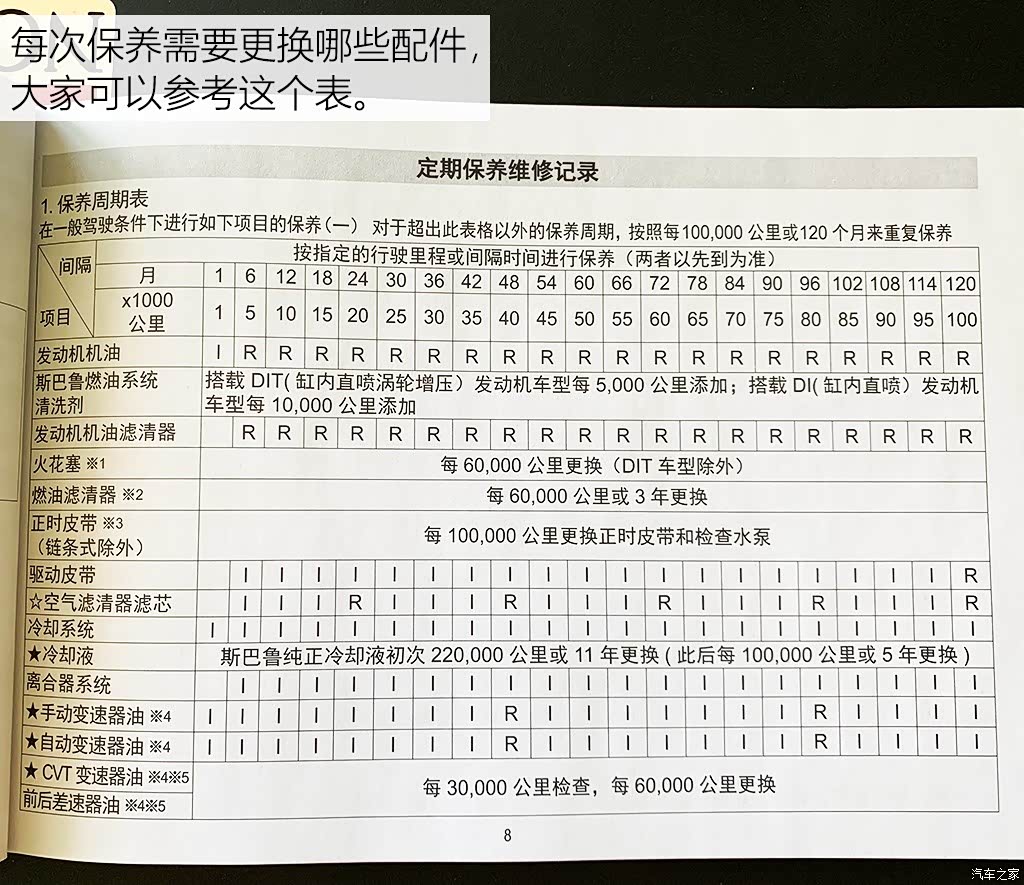 每次保养需要更换哪些配件，
大家可以参考这个表。
定期保养维修记录
1. 保养周期表
在一般驾驶条件下进行如下项目的保养(一) 对于超出此表格以外的保养周期，按照每100,000 公里或120 个月来重复保养
间隔
项目
按指定的行驶里程或间隔时间进行保养（两者以先到为准）
月 1 6 12 18 24 30 36 42 48 54 60 66 72 78 84 90 96 102 108 114 120
x1000
公里 1 5 10 15 20 25 30 35 40 45 50 55 60 65 70 75 80 85 90 95 100
发动机机油 I R R R R R R R R R R R R R R R R R R R R
斯巴鲁燃油系统
清洗剂
搭载 DIT( 缸内直喷涡轮增压）发动机车型每 5,000 公里添加；搭载 DI( 缸内直喷）发动机
车型每 10,000 公里添加
发动机机油滤清器 R R R R R R R R R R R R R R R R R R R R
火花塞 ※1 每 60,000 公里更换（DIT 车型除外）
燃油滤清器 ※2 每 60,000 公里或 3 年更换
正时皮带 ※3
（链条式除外）
每 100,000 公里更换正时皮带和检查水泵
驱动皮带 I I I I I I I I I I I I I I I I I I I R
☆空气滤清器滤芯 I I I R I I I R I I I R I I I R I I I R
冷却系统 I I I I I I I I I I I I I I I I I I I I I
★冷却液 斯巴鲁纯正冷却液初次 220,000 公里或 11 年更换 ( 此后每 100,000 公里或 5 年更换 )
离合器系统 I I I I I I I I I I I I I I I I I I I I
★手动变速器油 ※4 I I I I I I I I R I I I I I I I R I I I I
★自动变速器油 ※4 I I I I I I I I R I I I I I I I R I I I I
★ CVT 变速器油 ※4※5
前后差速器油 ※4※5
每 30,000 公里检查，每 60,000 公里更换
8
汽车之家